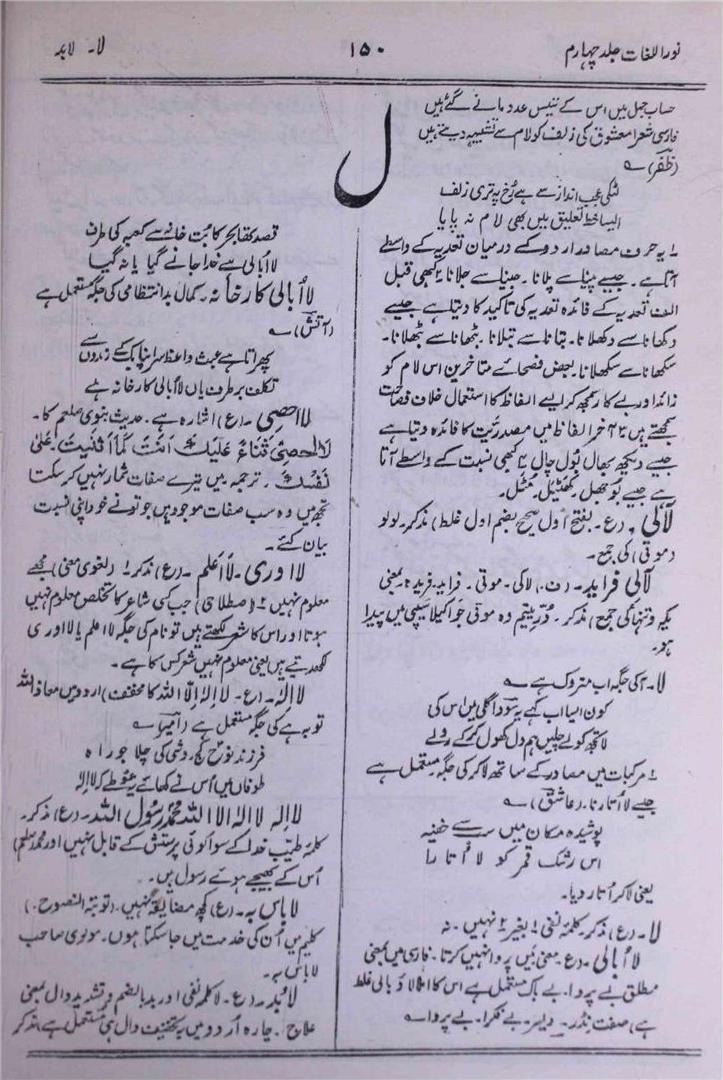 نور اللغات جلد چہارم
۱۵۰
لا۔ لابد
ل
حساب جمل میں اس کے تیس عدد مانے گئے ہیں
فارسی شعرا معشوق کی زلف کو لام سے تشبیہ دیتے ہیں
(ظفر) ؎
لٹکی عجب انداز سے ہے رُخ پہ تری زلف
ایسا خط تعلیق میں بھی لام نہ پایا
۱ یہ حرف مصادر اردو کے درمیان تعدیہ کے واسطے
آتا ہے۔ جیسے پینا سے پلانا۔ جینا سے جلانا ۲ کبھی قبل
الف تعدیہ کے فائدہ تعدیہ کی تاکید کا دیتا ہے جیسے
دکھانا سے دکھلانا۔ بتانا سے بتلانا۔ بٹھانا سے بٹھلانا۔
سکھانا سے سکھلانا۔ بعض فصحائے متاخرین اس لام کو
زائد اور بے کار سمجھ کر ایسے الفاظ کا استعمال خلاف فصاحت
سمجھتے ہیں ۳ آخر الفاظ میں مصدریت کا فائدہ دیتا ہے
جیسے دیکھ بھال بول چال ۴ کبھی نسبت کے واسطے آتا
ہے جیسے بوجھل۔ گھٹیل۔ مٹیل۔
لآلی۔ (ع۔ بفتح اول صحیح بضم اول غلط) مذکر۔ لولو
(موتی) کی جمع۔
لآلی فراید۔ (ف۔ لآلی۔ موتی۔ فراید۔ فرید بمعنی
یکہ و تنہا کی جمع) مذکر۔ دُرِّ یتیم وہ موتی جو اکیلا سیپی میں پیدا
ہو۔
لا۔ آ کی جگہ اب متروک ہے ؎
کون ایسا اب کہے یہ سودا گلی میں اس کی
لا تجھ کو لے چلیں ہم دل کھول کر کے رولے
۱ مرکبات میں مصادر کے ساتھ لا کر کی جگہ مستعمل ہے
جیسے لا اُتارنا۔ (عاشق) ؎
پوشیدہ مکان میں سب سے خفیہ
اس رشک قمر کو لا اُتارا
یعنی لا کر اُتار دیا۔
لا۔ (ع) مذکر۔ کلمۂ نفی ۱ بغیر ۲ نہیں۔ نہ
لا اُبالی۔ (ع۔ معنی میں پروا نہیں کرتا۔ فارسی میں بمعنی
مطلق بے پروا۔ بے باک مستعمل ہے اس کا املا لا وُبالی غلط
ہے) صفت نڈر۔ دلیر۔ بے فکرا۔ بے پروا ؎
قصد کفا بحر کا بُت خانہ سے کعبہ کی طرف
لا اُبالی ہے خدا جانے گیا یا نہ گیا
لا اُبالی کارخانہ۔ کمال بدانتظامی کی جگہ مستعمل ہے
(آتش) ؎
پھراتا ہے عبث واعظ سر اپنا بک کے رندوں سے
تکلف برطرف یاں لا اُبالی کارخانہ ہے
لا احصی۔ (ع) اشارہ ہے۔ حدیث نبوی صلعم کا۔
لا احصی ثناءً علیک انت کما اثنیت علیٰ
نفسک۔ ترجمہ میں تیرے صفات شمار نہیں کر سکتا
تجھ میں وہ سب صفات موجود ہیں جو تو نے خود اپنی نسبت
بیان کئے۔
لا ادری۔ لا اعلم۔ (ع) مذکر ۱ (لغوی معنی) مجھے
معلوم نہیں ۲ (اصطلاحی) جب کسی شاعر کا تخلص معلوم نہیں
ہوتا اور اس کا شعر لکھتے ہیں تو نام کی جگہ لا اعلم یا لا ادری
لکھ دیتے ہیں یعنی معلوم نہیں شعر کس کا ہے۔
لا الہ۔ (ع۔ لا الہ الا اللہ کا مخفف) اردو میں معاذ اللہ
توبہ ہے کی جگہ مستعمل ہے (امیر) ؎
فرزند نوح کج روشی کی چلا جو راہ
طوفاں میں اُس نے کھائے یہ غوطے کہ لا الہ
لا الہ الا اللہ محمد رسول اللہ۔ (ع) مذکر۔
کلمۂ طیّب خدا کے سوا کوئی پرستش کے قابل نہیں اور محمد (صلعم)
اُس کے بھیجے ہوئے رسول ہیں۔
لا باس بہ۔ (ع) کچھ مضایقہ نہیں۔ (توبۃ النصوح۔)
کلیم میں اُن کی خدمت میں جا سکتا ہوں۔ مولوی صاحب
لا باس بہ۔
لا بُد۔ (ع۔ لا کلمہ نفی اور بد بالضم و تشدید دال بمعنی
علاج۔ چارہ اُردو میں بہ تخفیف دال ہی مستعمل ہے) مذکر